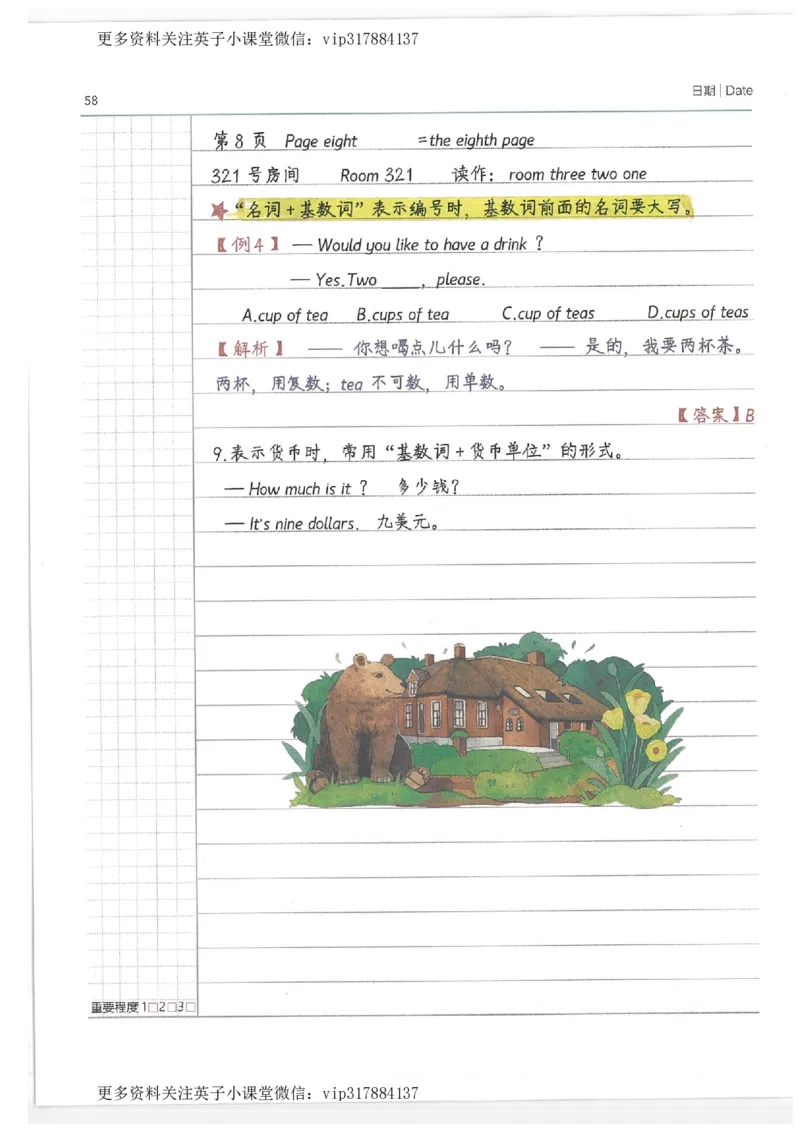 更多资料关注英子小课堂微信：vip317884137
58
日期 | Date
第8页 Page eight =the eighth page
321号房间 Room 321 读作：room three two one
★“名词+基数词”表示编号时，基数词前面的名词要大写。
【例4】 — Would you like to have a drink ?
— Yes.Two ____, please.
A.cup of tea B.cups of tea C.cup of teas D.cups of teas
【解析】 —— 你想喝点儿什么吗？ —— 是的，我要两杯茶。
两杯，用复数；tea 不可数，用单数。
【答案】B
9.表示货币时，常用“基数词+货币单位”的形式。
— How much is it ? 多少钱？
— It's nine dollars. 九美元。
重要程度 1□2□3□
更多资料关注英子小课堂微信：vip317884137